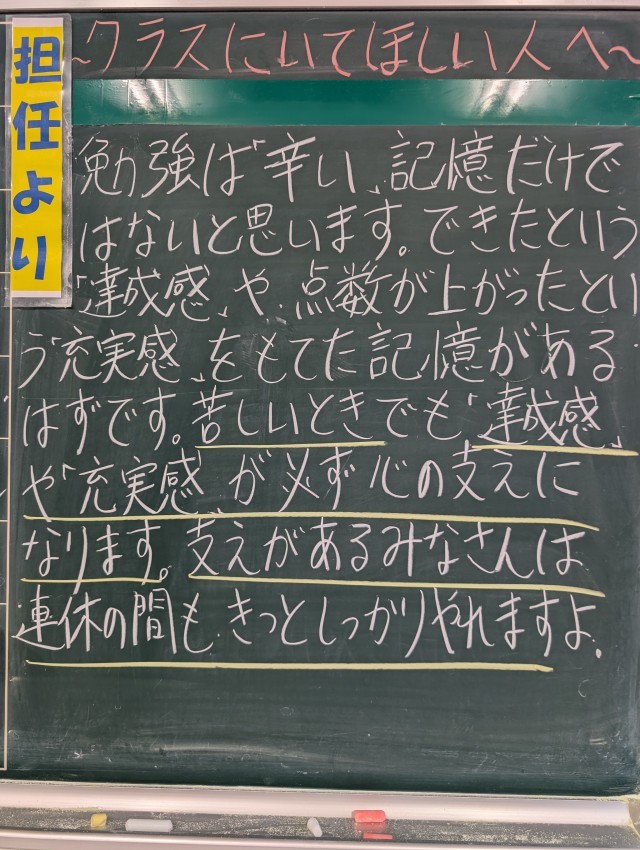 〜クラスにいてほしい人へ〜
担任より
勉強は「辛い」記憶だけで
はないと思います。できたという
「達成感」や、点数が上がったとい
う「充実感」をもてた記憶がある
はずです。苦しいときでも「達成感」
や「充実感」が必ず心の支えに
なります。支えがあるみなさんは
連休の間も、きっとしっかりやれますよ。